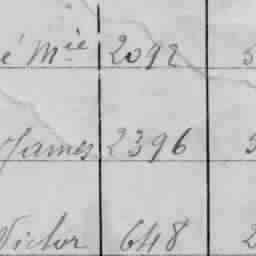 é Mie 2092 5
James 2396 3
Victor 648 2